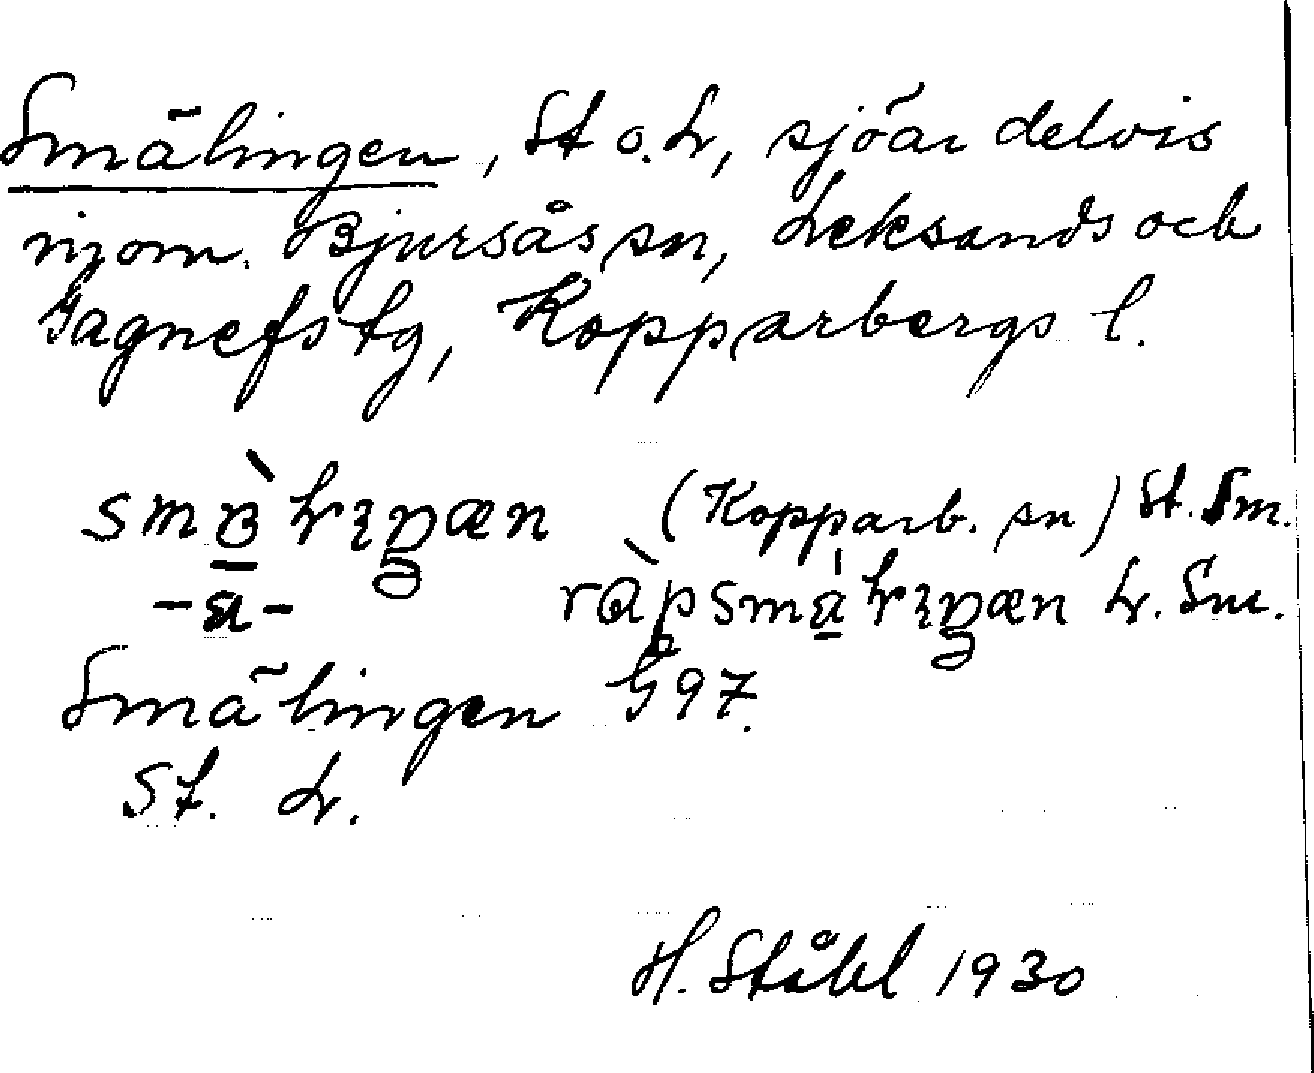 Smälingen, St o. L, sjöar delvis
inom. Bjursås sn, Leksands och
Gagnefs tg, Kopparbergs l.
(Kopparb. sn) St. Sm.
L. Sm.
Smälingen G97.
St. L.
H. Ståhl 1930